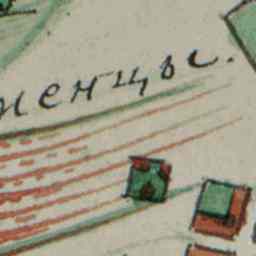 менцы.